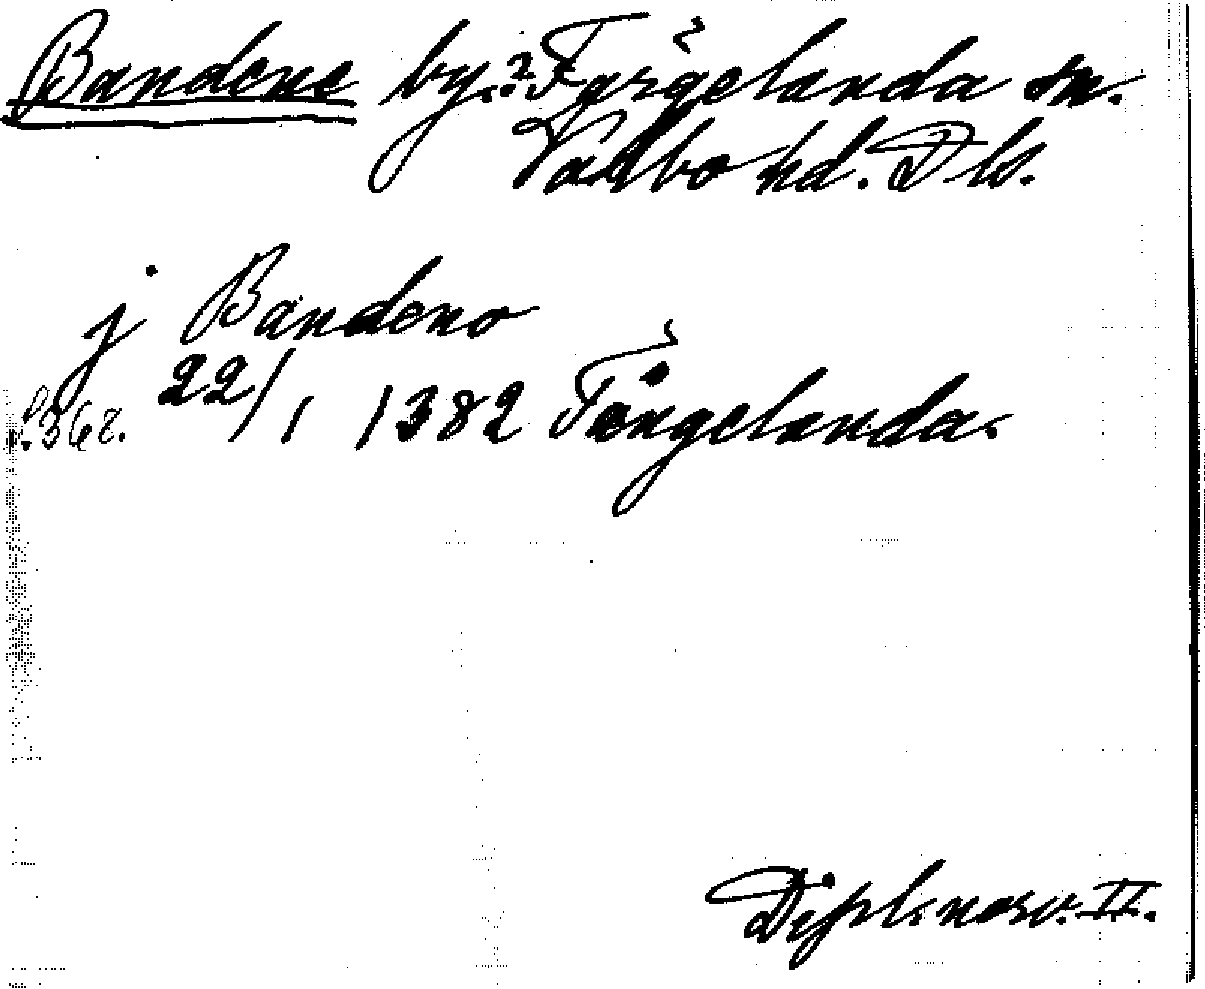 Bandene by.? Färgelanda sn.
Valbo hd. Dls.
j Bandeno
s. 362. 22/1 1382 Færgelanda.
Dipl. norv. II.